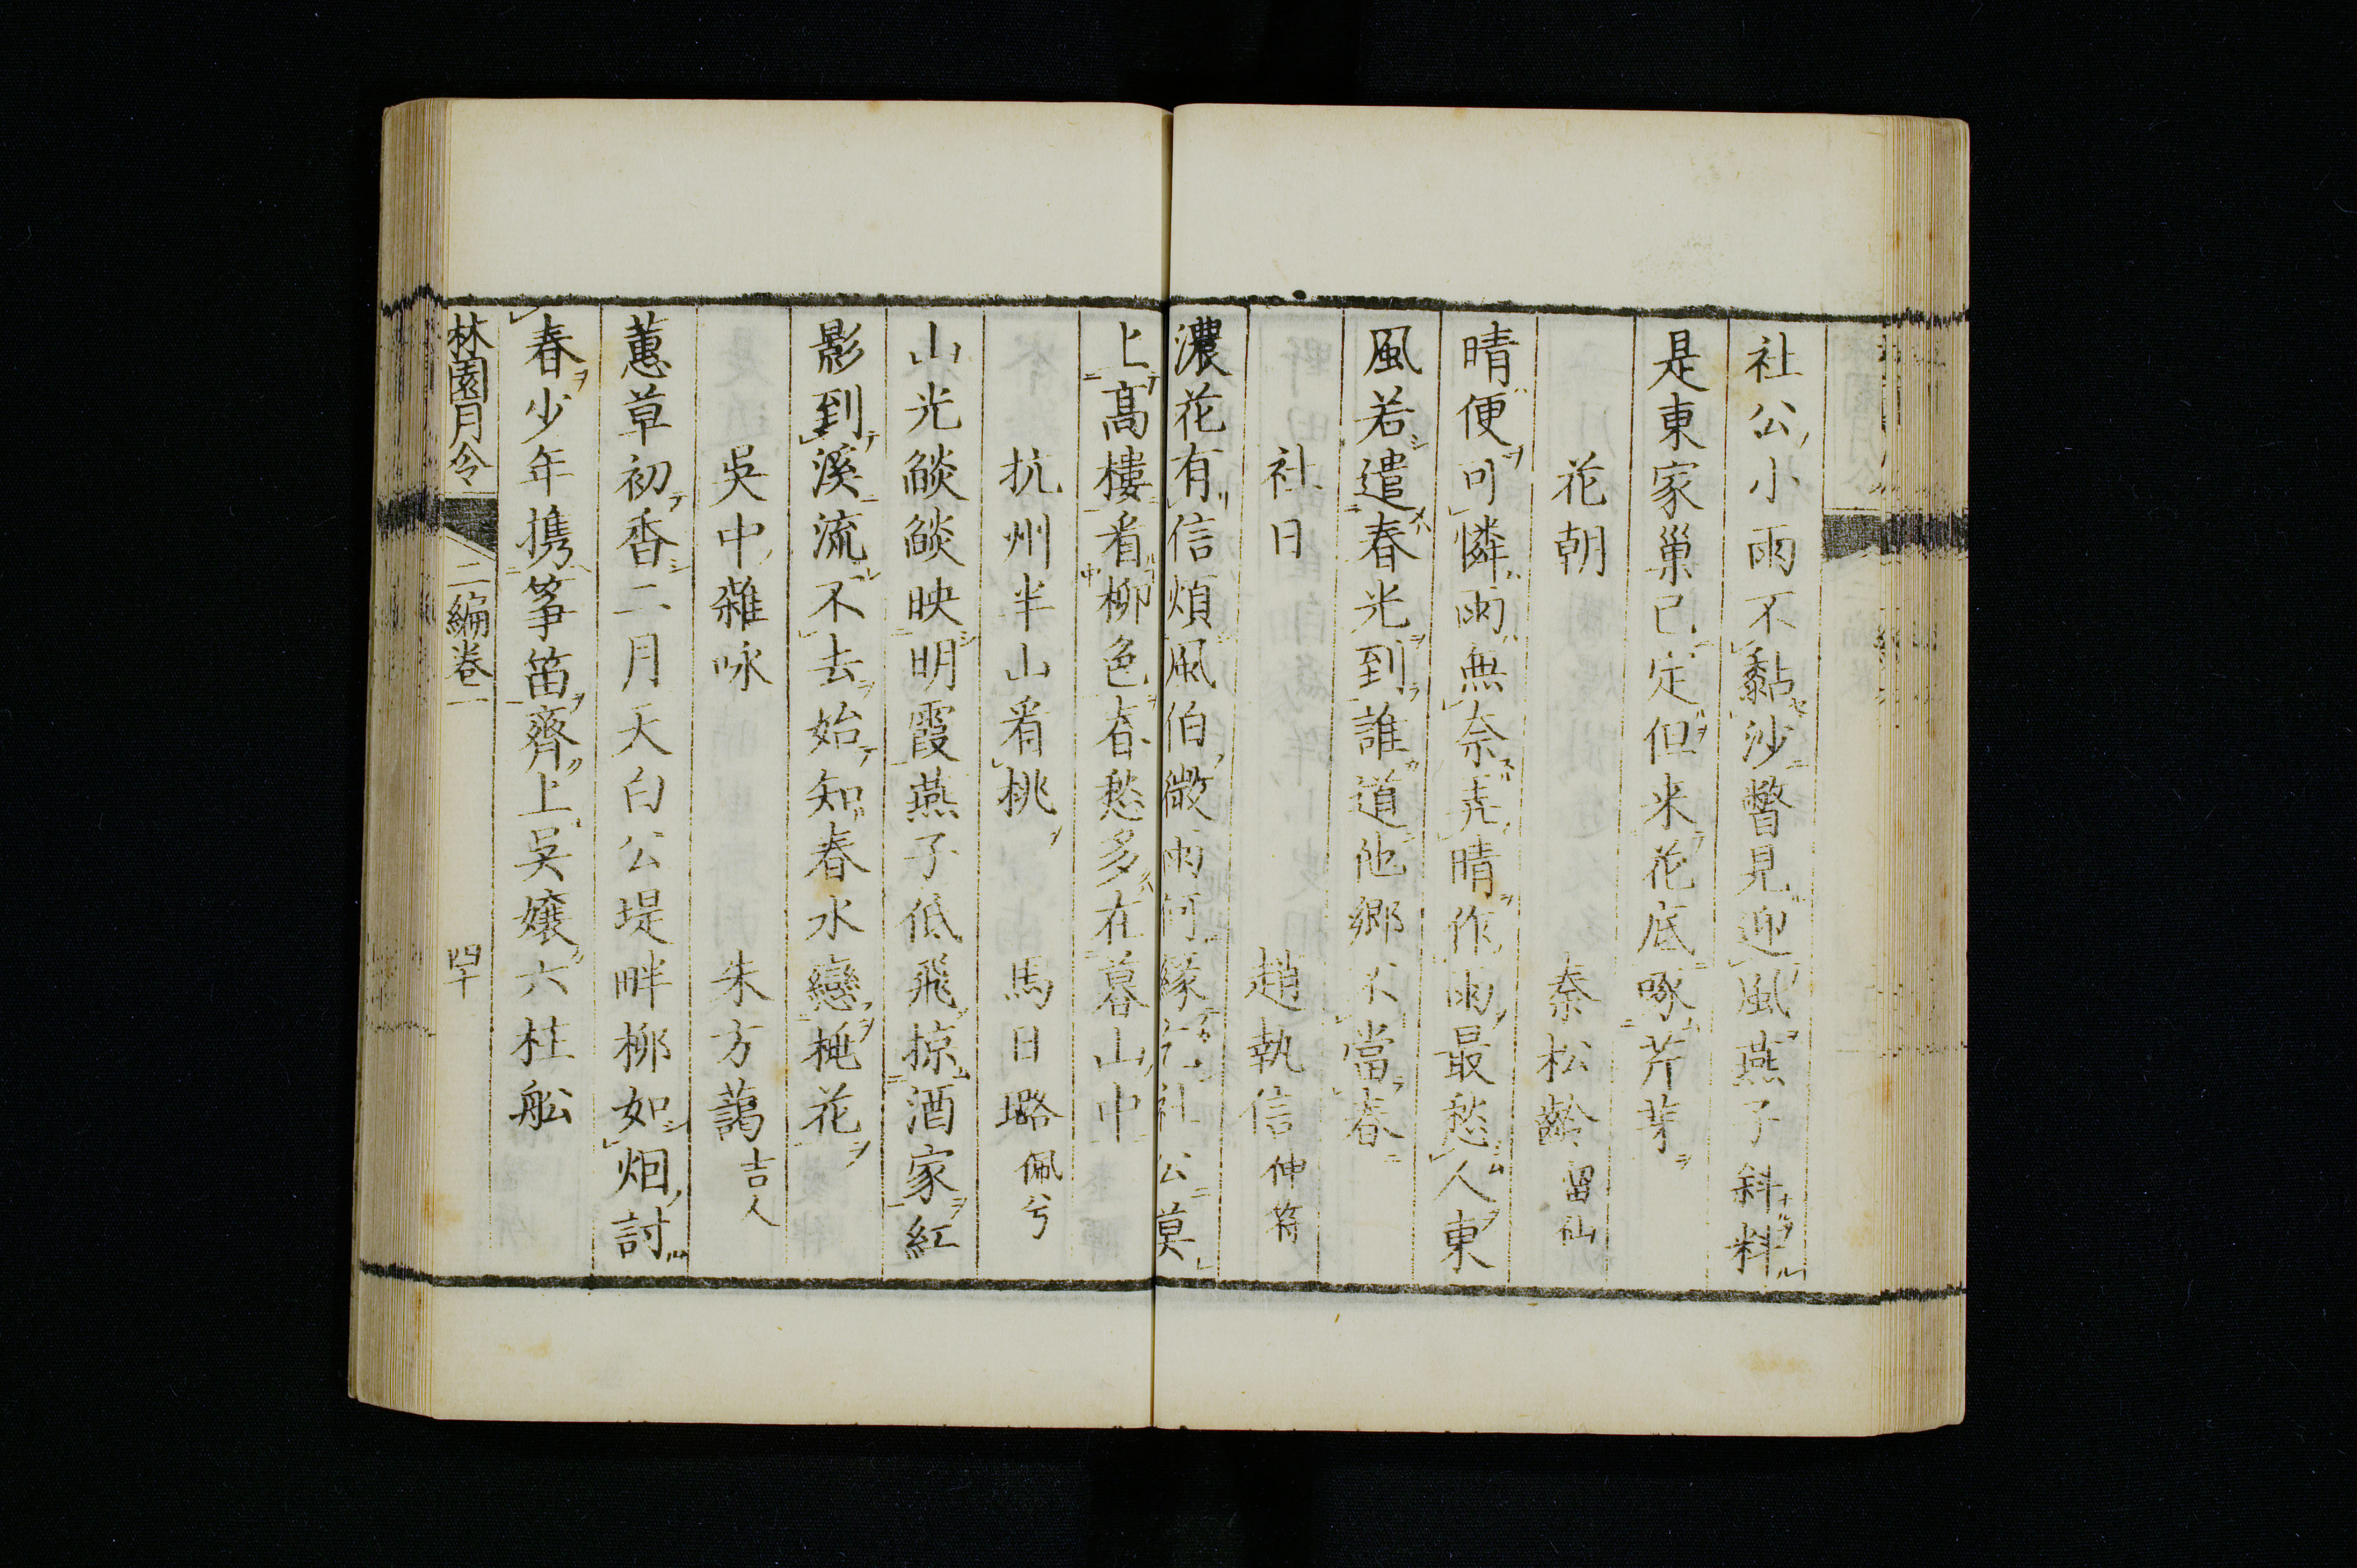 社公小雨不黏沙瞥見迎風燕子斜料
是東家巢已定但来花底啄芹芽
花朝 秦松齡 留仙
晴便可憐雨無奈弄晴作雨最愁人東
風若遣春光到誰道他郷不當春
社日 趙執信 伸符
濃花有信煩風伯微雨何縁社公莫
上髙樓看柳色春愁多在暮山中
抗州半山看桃 馬日璐 佩兮
山光燄燄映明霞燕子低飛掠酒家紅
影到溪流不去始知春水戀桃花
吳中雜咏 朱方藹 吉人
蕙草初香二月天白公堤畔柳如烟討
春少年携筝笛齊上吳孃六柱舩
林園月令 二編卷一 四十